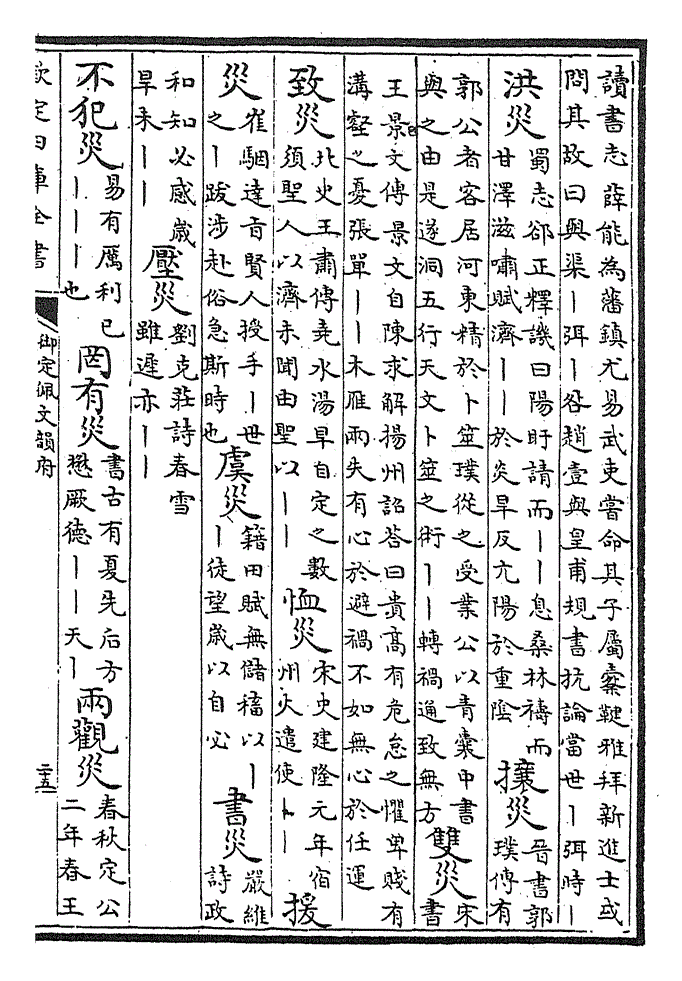 讀書志薛能為藩鎮尤易武吏嘗命其子屬櫜鞬雅拜新進士或
問其故曰與渠丨弭丨咎趙壹與皇甫規書抗論當世丨弭時丨
洪災 蜀志郤正釋譏曰陽盱請而丨丨息桑林禱而甘澤滋嘯賦濟丨丨於炎旱反亢陽於重陰 攘災 晉書郭璞傳有
郭公者客居河東精於卜筮璞從之受業公以青囊中書與之由是遂洞五行天文卜筮之術丨丨轉禍通致無方 雙災 宋書
王景文傳景文自陳求解揚州詔荅曰貴高有危怠之懼卑賤有
溝壑之憂張單丨丨木雁兩失有心於避禍不如無心於任運
致災 北史王肅傳堯水湯旱自定之數須聖人以濟未聞由聖以丨丨 恤災 宋史建隆元年宿州火遣使丨丨 援
災 崔駰達旨賢人授手丨世之丨跋涉赴俗急斯時也 虞災 籍田賦無儲稸以丨丨徒望歲以自必 書災 嚴維詩政
和知必感歲旱未丨丨 壓災 劉克莊詩春雪雖遲亦丨丨
不犯災 易有厲利已丨丨丨也 罔有災 書古有夏先后方懋厥德丨丨天丨 兩觀災 春秋定公二年春王
欽定四庫全書
御定佩文韻府